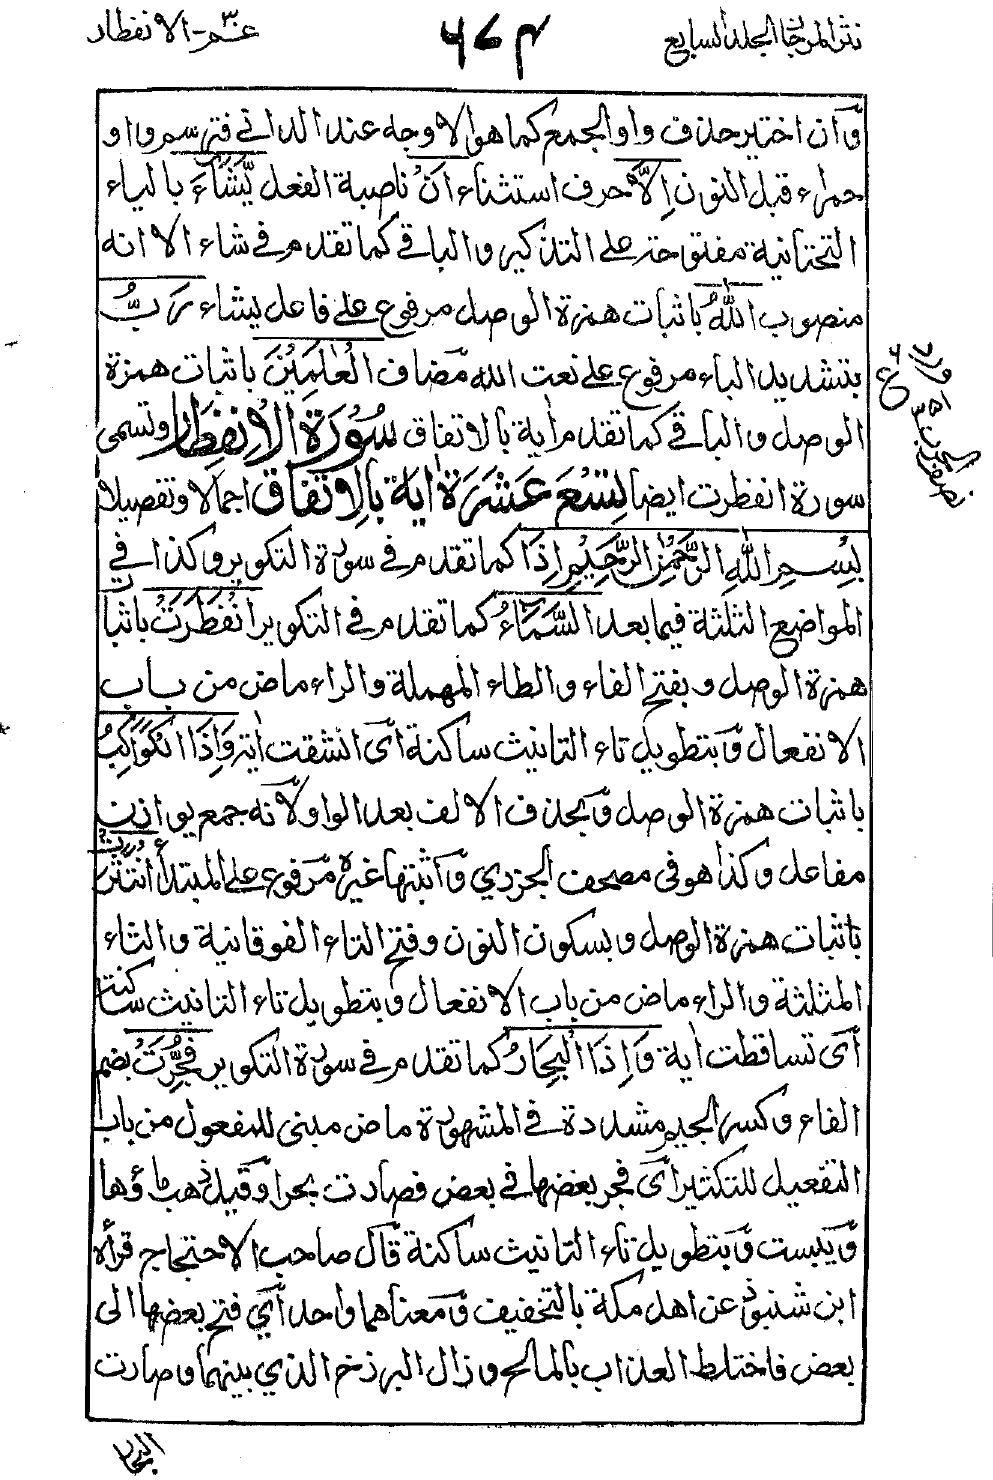 نثر المرجان الجلد السابع
٦٧٤
عـم - الانفطار
وان اختير حذف واو الجمع كما هو الاوجه عند الداني فترسم واو
حمراء قبل النون اِلَّا حرف استثناء اَنْ ناصبة الفعل يَّشَآءَ بالياء
التحتانية مفتوحة على التذكير والباقي كما تقدم في شاء الا انه
منصوب اللّٰهُ باثبات همزة الوصل مرفوع على فاعل يشاء رَبُّ
بتشديد الباء مرفوع على نعت الله مضاف الْعٰلَمِيْنَ باثبات همزة
الوصل والباقي كما تقدم اٰية بالاتفاق سُوْرَةُ الْاِنْفِطَارِ وتسمى
سورة انفطرت ايضا تِسْعَ عَشَرَةَ اٰيَة بِالْاِتِّفَاقِ اجمالا وتفصيلا
بِسْمِ اللّٰهِ الرَّحْمٰنِ الرَّحِيْمِ اِذَا كما تقدم في سورة التكوير وكذا في
المواضع الثلثة فيما بعد السَّمَآءُ كما تقدم في التكوير انْفَطَرَتْ باثبات
همزة الوصل وبفتح الفاء والطاء المهملة والراء ماض من باب
الانفعال وبتطويل تاء التانيث ساكنة اى انشقت اٰية وَاِذَا الْكَوَاكِبُ
باثبات همزة الوصل وبحذف الالف بعد الواو لانه جمع يوازن
مفاعل وكذا هو في مصحف الجزري واثبتها غيره مرفوع على المبتدأ انْتَثَرَتْ
باثبات همزة الوصل وبسكون النون وفتح التاء الفوقانية والثاء
المثلثة والراء ماض من باب الانفعال وبتطويل تاء التانيث ساكنة
اى تساقطت اٰية وَاِذَا الْبِحَارُ كما تقدم في سورة التكوير فُجِّرَتْ بضم
الفاء وكسر الجيم مشددة في المشهورة ماض مبني للمفعول من باب
التفعيل للتكثير اى فجر بعضها في بعض فصارت بحرا وقيل ذهب ماؤها
ويبست وبتطويل تاء التانيث ساكنة قال صاحب الاحتجاج قرأه
ابن شنبوذ عن اهل مكة بالتخفيف ومعناهما واحد اي فتح بعضها الى
بعض فاختلط العذاب بالمالح وزال البرزخ الذي بينهما وصارت
البحار